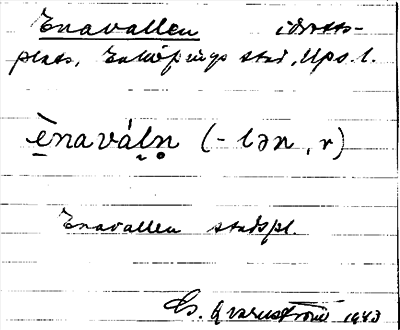 Enavallen idrotts-
plats, Enköpings stad, Ups. l.
ènaváln (-lən, r)
Enavallen stadspl.
1983